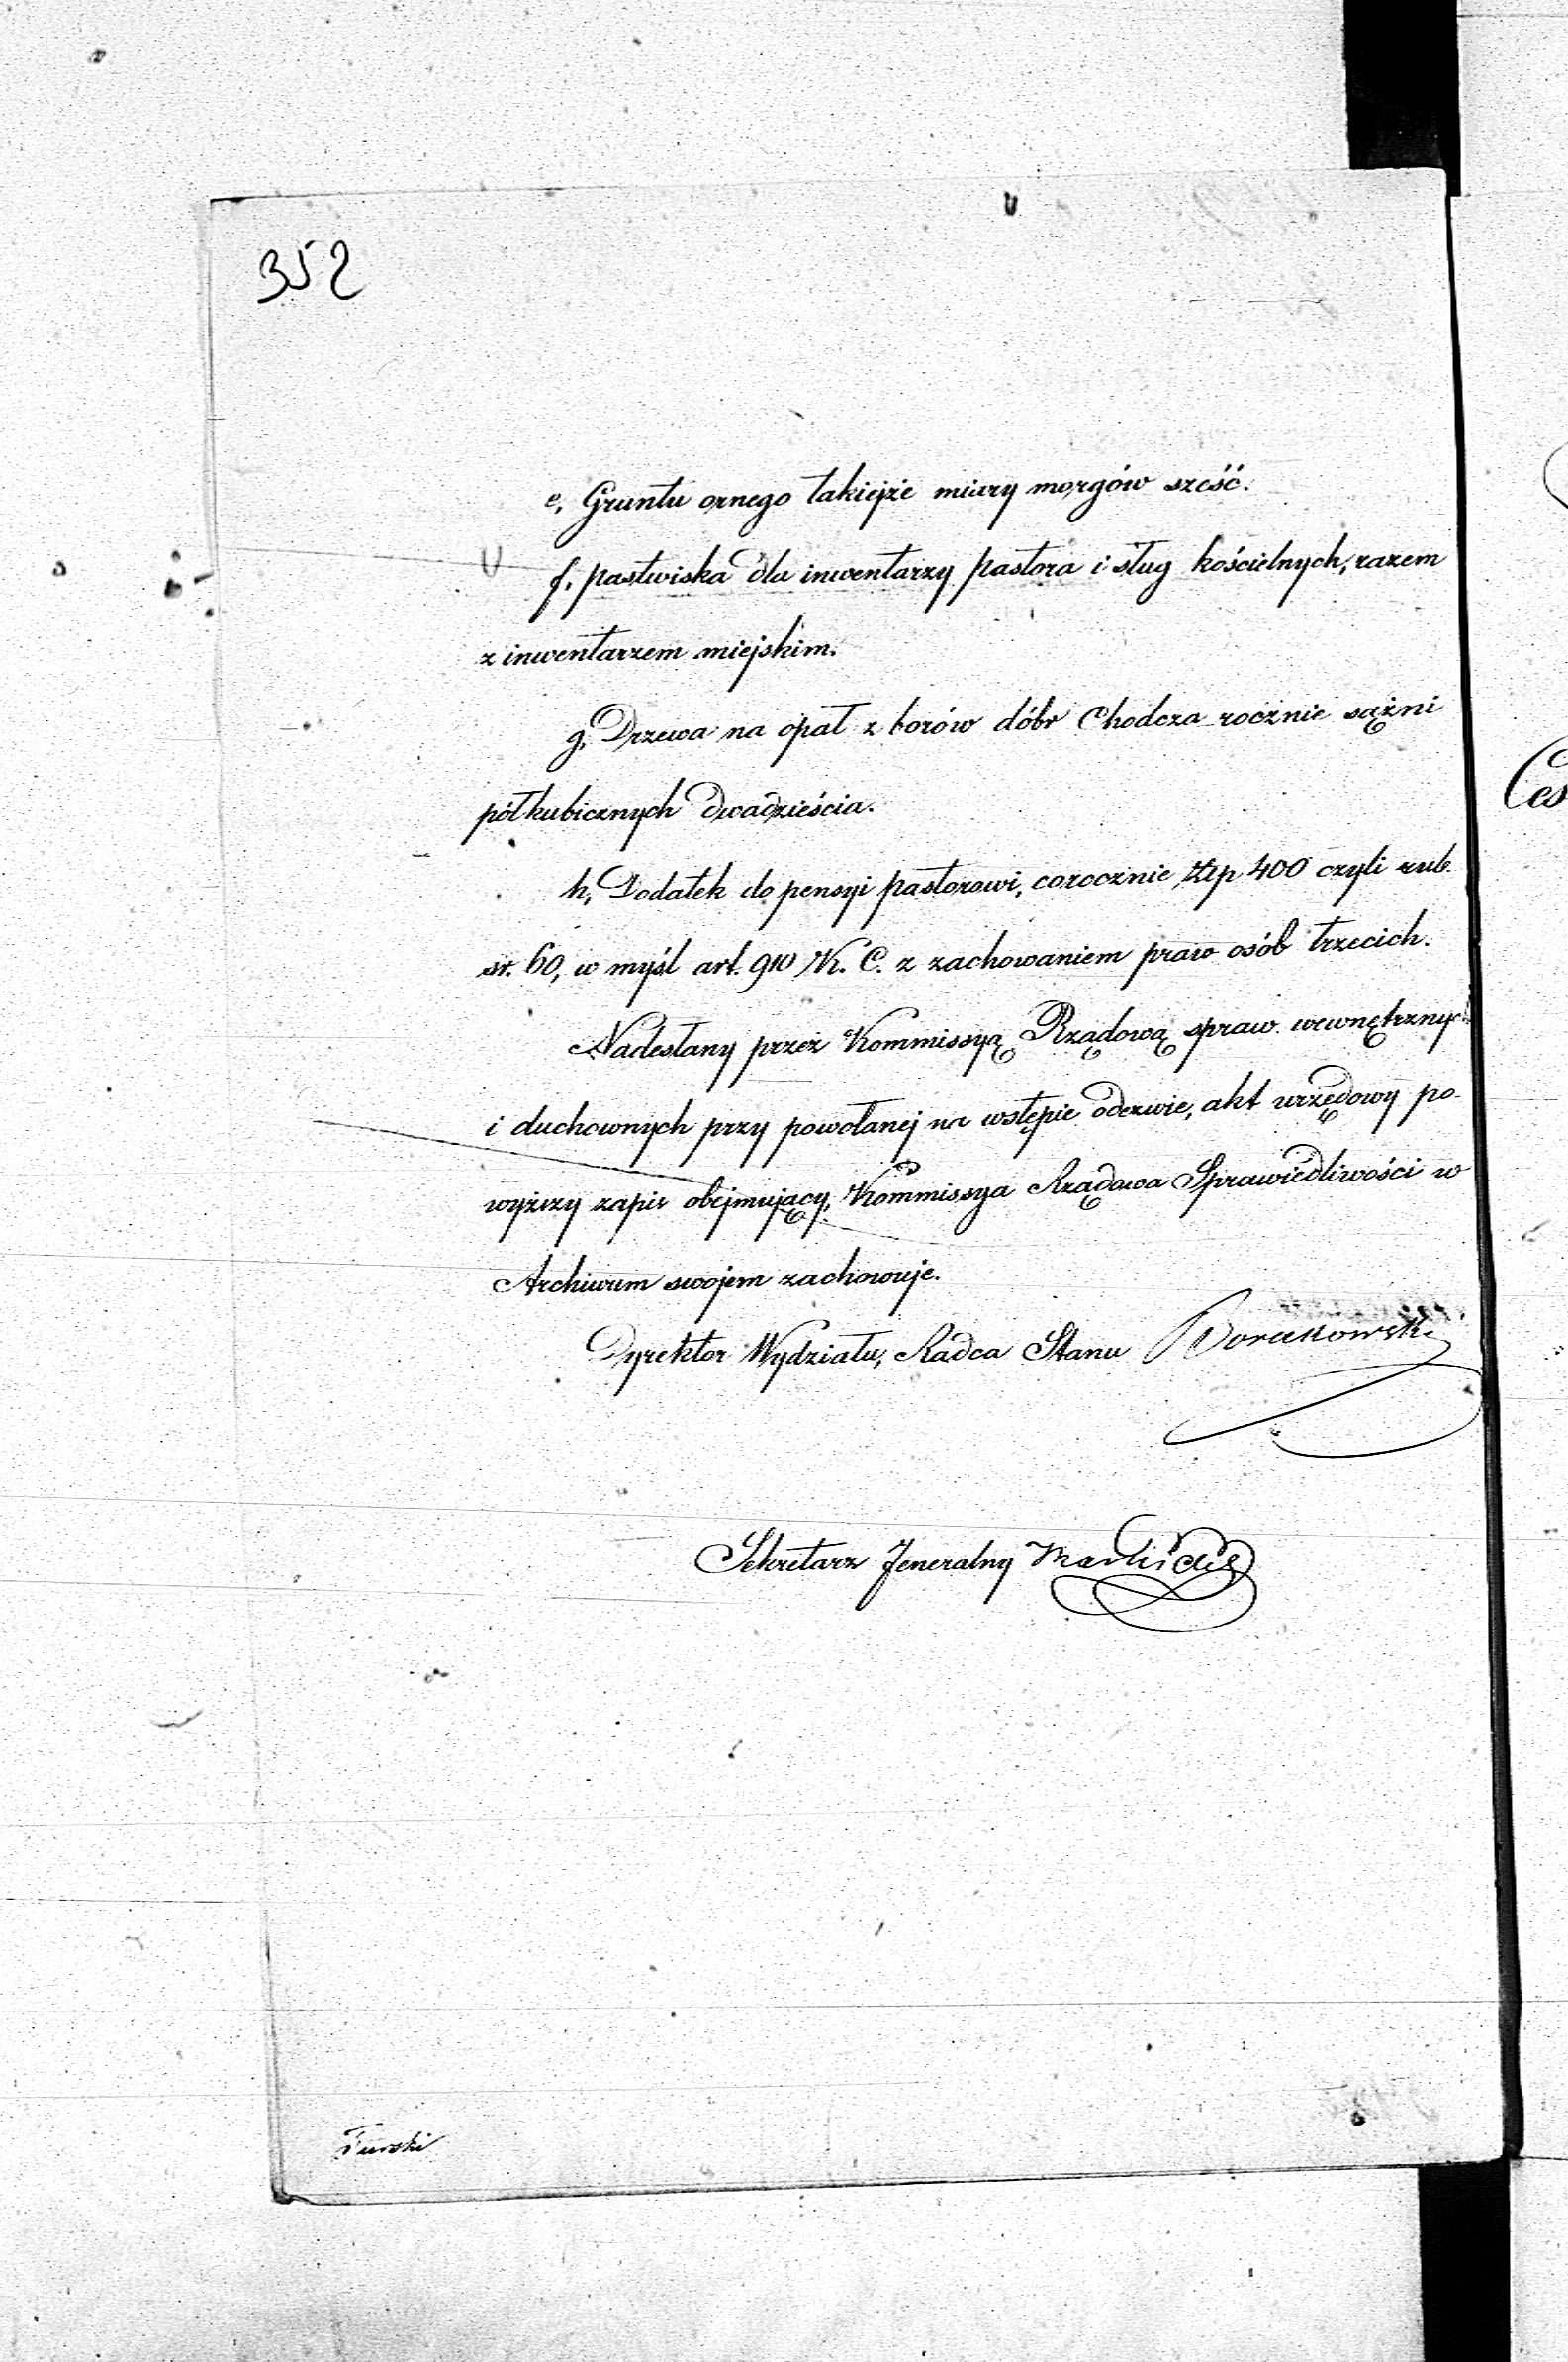 352
e, Gruntu ornego takiejże miary morgów sześć.
f, pastwiska dla inwentarzy pastora i sług kościelnych, razem
z inwentarzem miejskim.
g, Drzewa na opał z borów dóbr Chodcza rocznie sążni
półkubicznych dwadzieścia.
h, Dodatek do pensyi pastorowi, corocznie Złp 400 czyli rub.
sr. 60, w myśl art. 910 K. C. z zachowaniem praw osób trzecich.
Nadesłany przez Kommissyą Rządową spraw wewnętrznych
i duchownych przy powołanej na wstępie odezwie, akt urzędowy po-
wyższy zapis obejmujący, Kommissya Rządowa Sprawiedliwości w
Archiwum swojem zachowuje.
Dyrektor Wydziału, Radca Stanu
Sekretarz Jeneralny
Turski
Ces